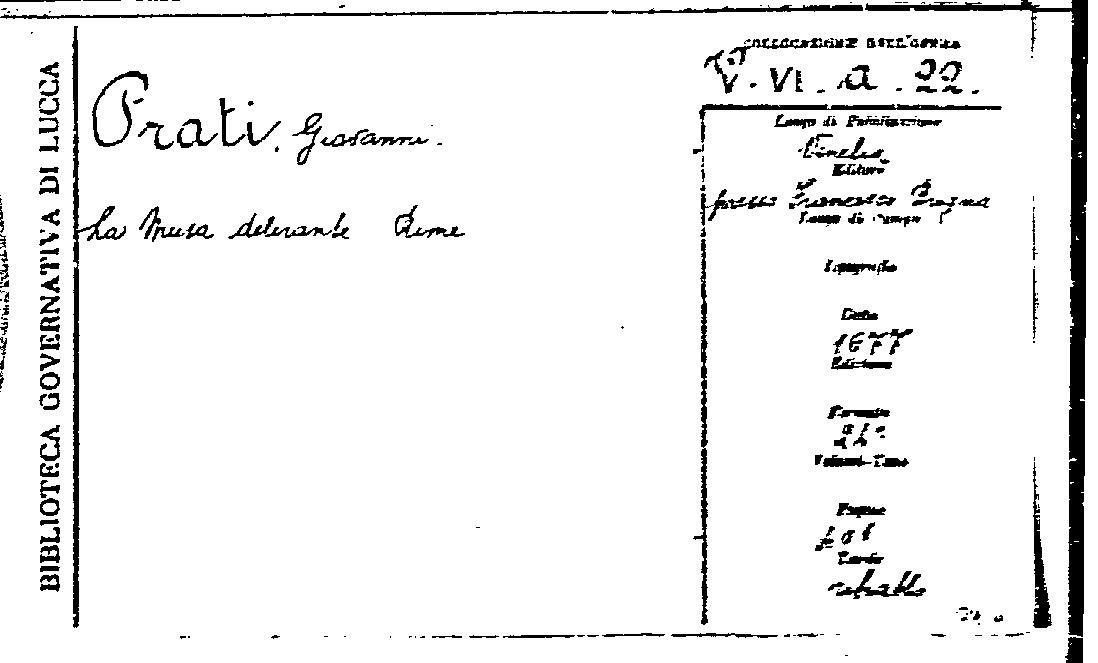 BIBLIOTECA GOVERNATIVA DI LUCCA
Prati, Giovanni.
La Musa delirante Rime
COLLOCAZIONE DELL'OPERA
V. VI. a. 22.
Luogo di Pubblicazione
Venezia
Editore
presso Francesco
Luogo di Stampa
Tipografo
Data
1677
Edizione
Formato
24°
Volumi-Tomi
Pagine
Tavole
ritratto